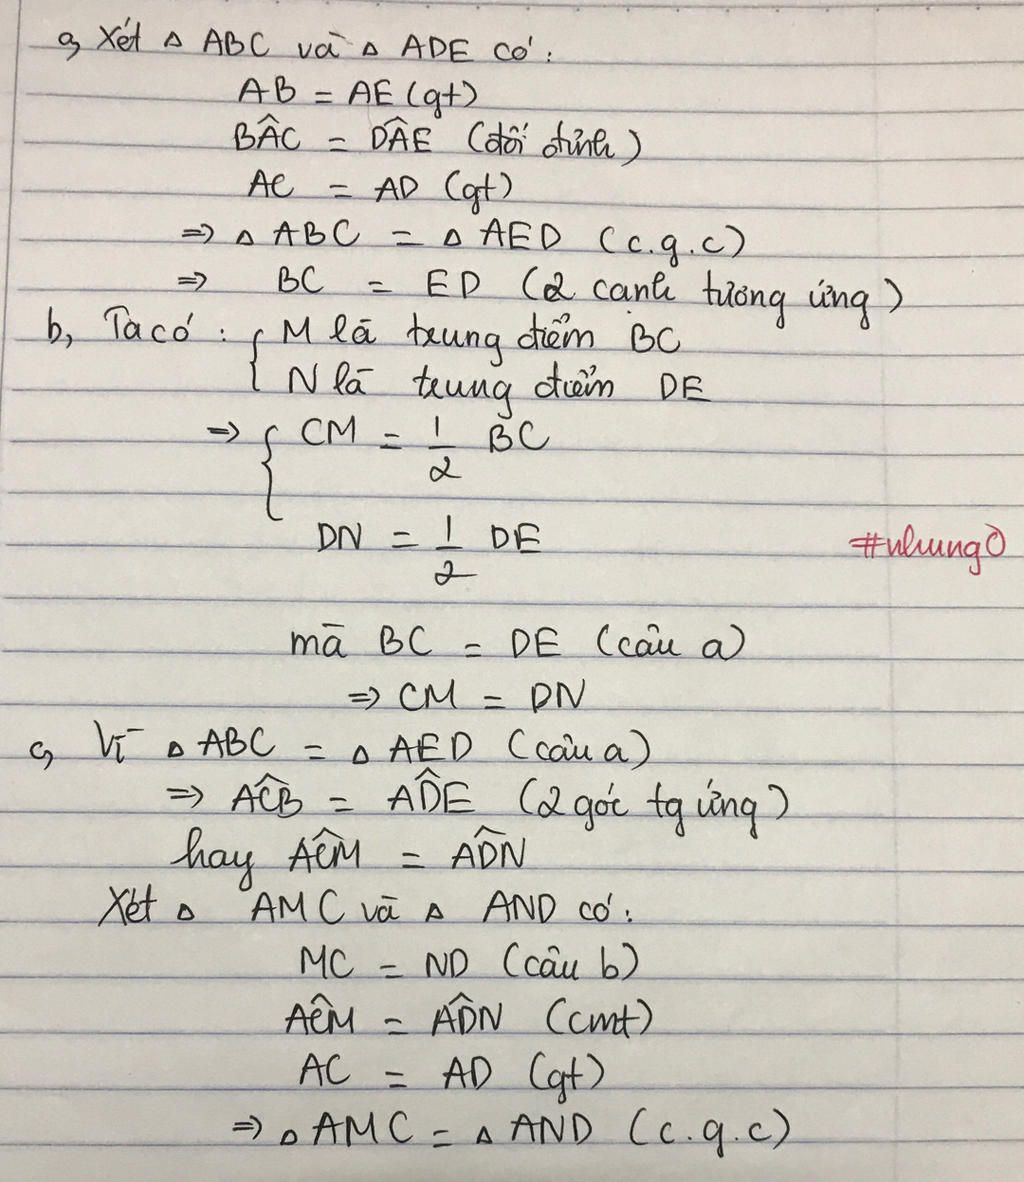 a, Xét Δ ABC và Δ ADE có:
AB = AE (gt)
BÂC = DÂE (đối đỉnh)
AC = AD (gt)
=> Δ ABC = Δ AED (c.g.c)
=> BC = ED (2 cạnh tương ứng)
b, Ta có: { M là trung điểm BC
N là trung điểm DE
=> { CM = 1/2 BC
DN = 1/2 DE
#nhung0
mà BC = DE (câu a)
=> CM = DN
c, Vì Δ ABC = Δ AED (câu a)
=> AĈB = AD̂E (2 góc tg ứng)
hay AĈM = AD̂N
Xét Δ AMC và Δ AND có:
MC = ND (câu b)
AĈM = AD̂N (cmt)
AC = AD (gt)
=> Δ AMC = Δ AND (c.g.c)